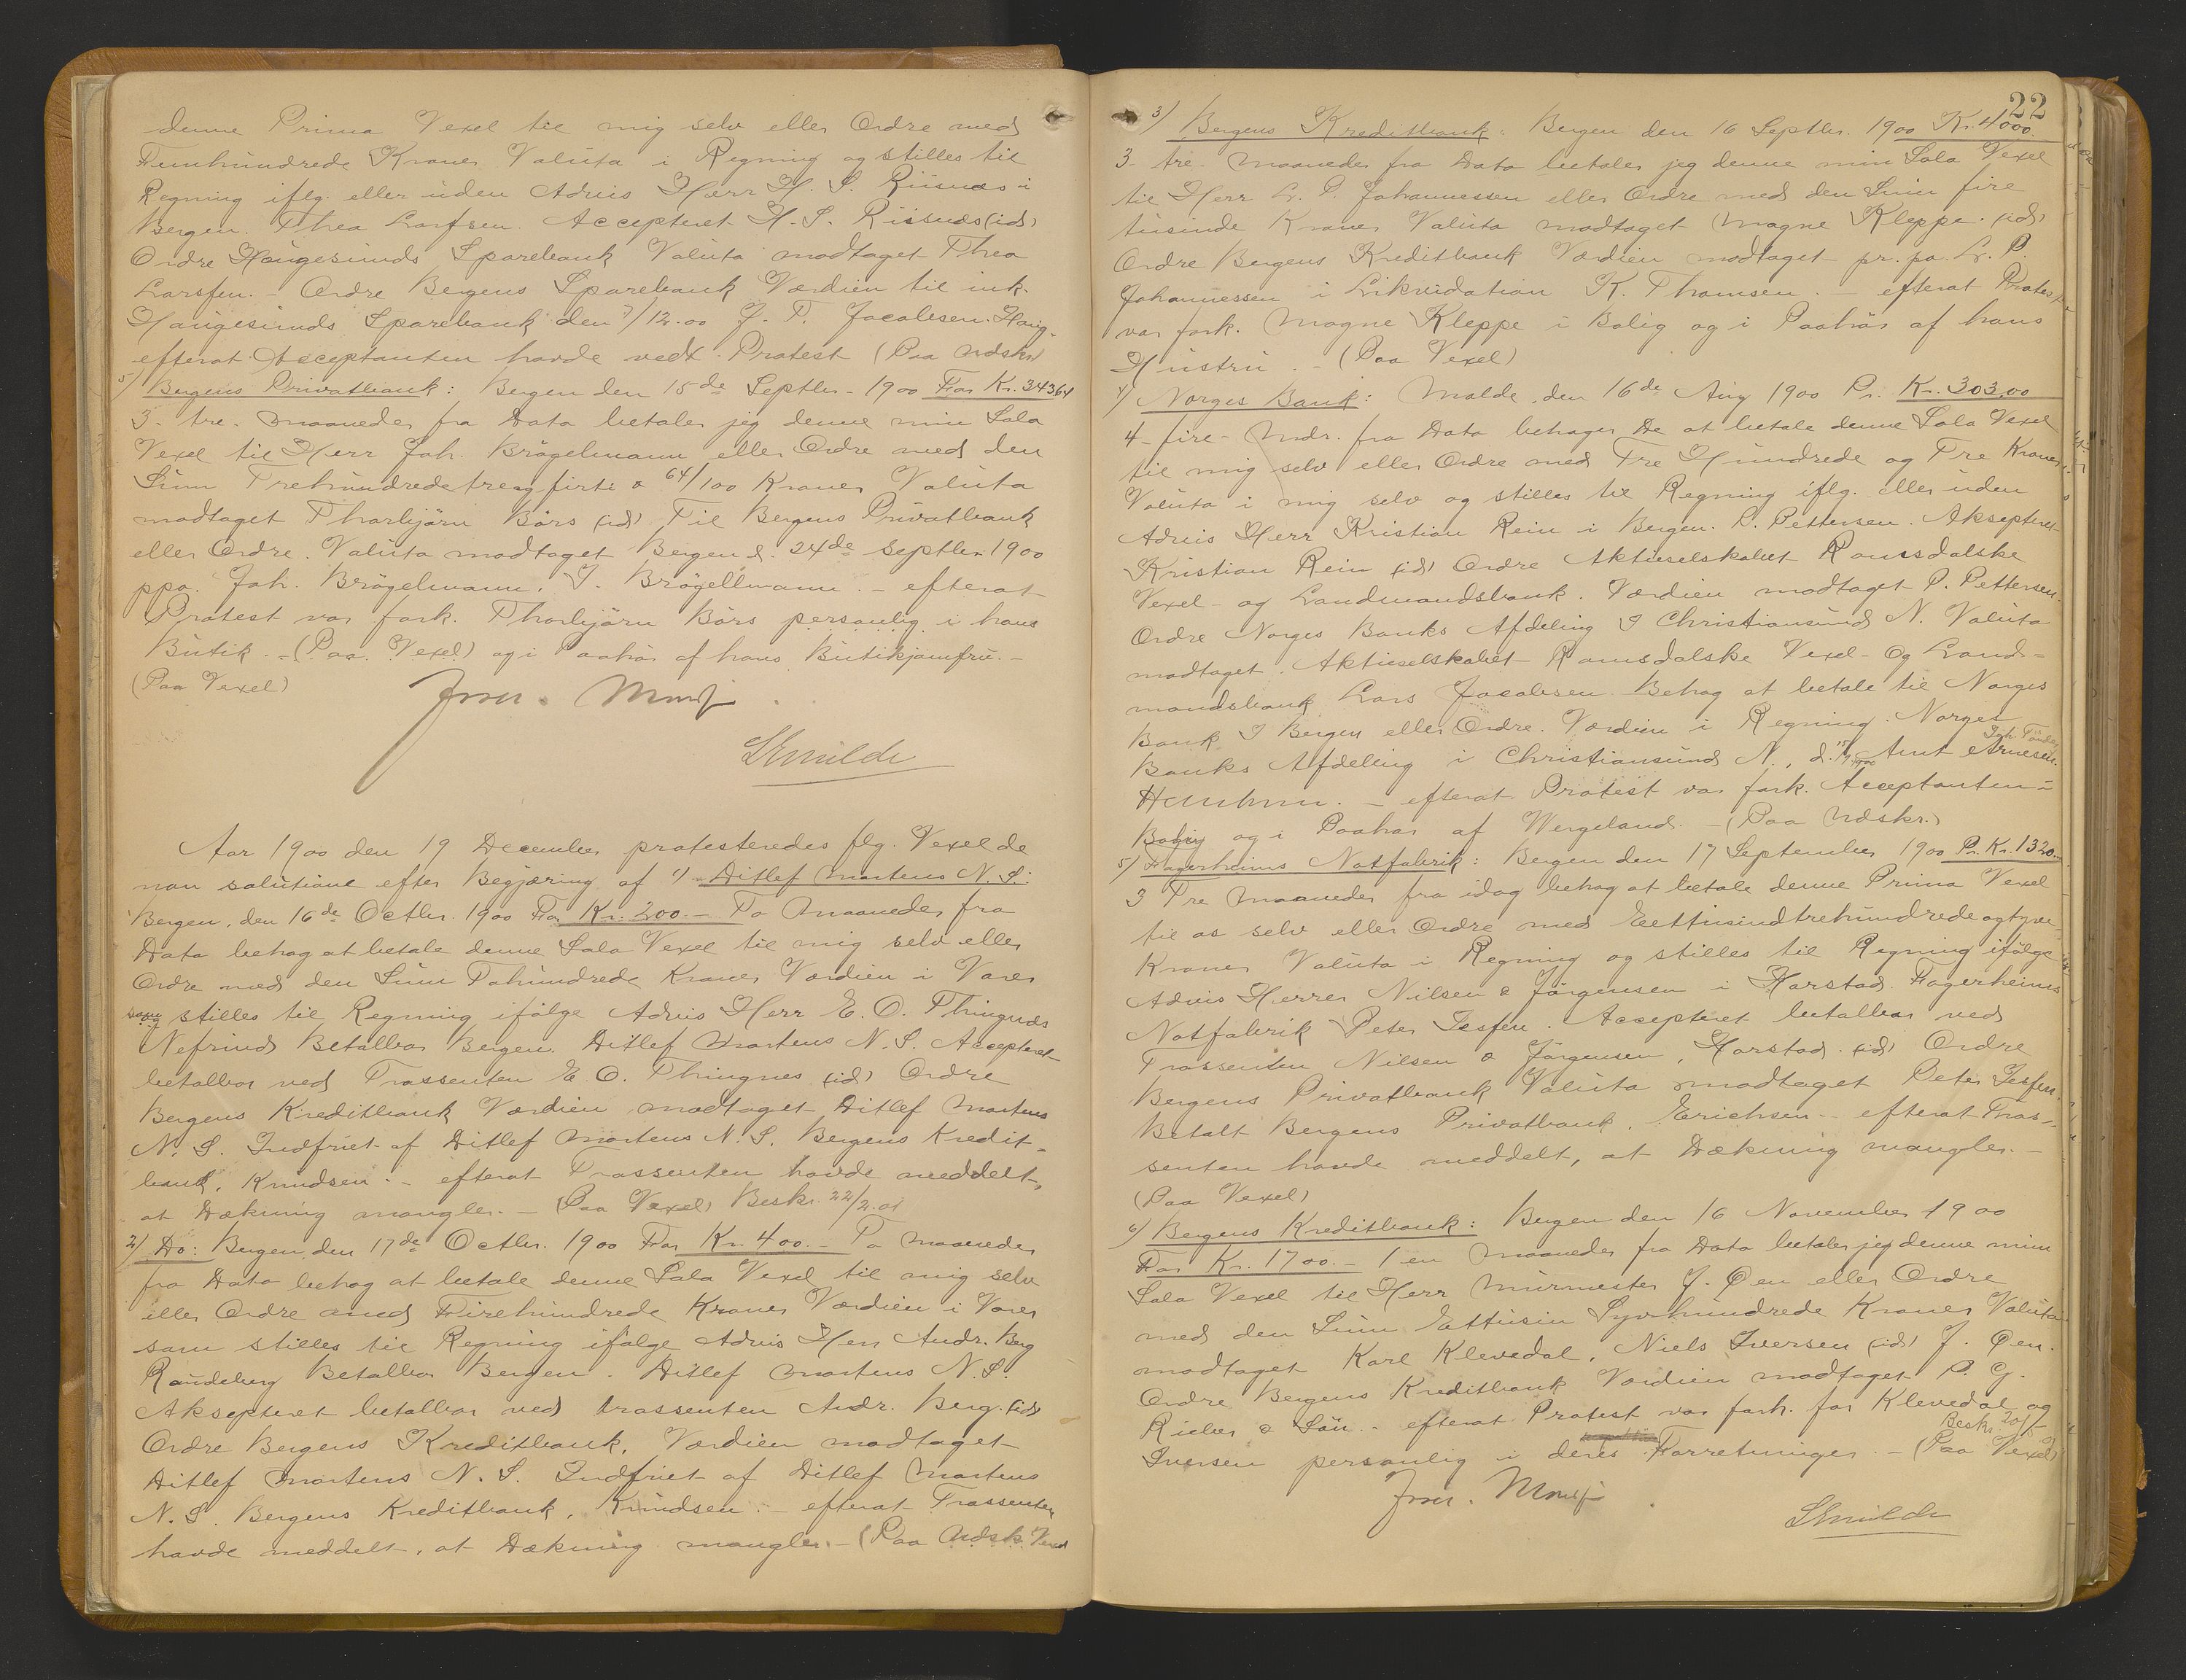 denne Prima Vexel til mig selv eller Ordre med
Femhundrede Kroner Valuta i Regning og stilles til
Regning iflg. eller uden Advis Herr H. S. Riisnæs i
Bergen. Thea Larsen. Accepteret H. S. Riisnæs (id)
Ordre Haugesunds Sparebank Valuta modtaget Thea
Larsen. - Ordre Bergens Sparebank Værdien til ink.
Haugesunds Sparebank den 7/12.00 J. T. Jacobsen. Haug-
efterat Acceptanten havde vedt. Protest (Paa Udskr)
5) Bergens Privatbank: Bergen den 15de Septbr. 1900 For Kr. 34364
3 - tre - Maaneder fra Dato betaler jeg denne min Sola
Vexel til Herr Joh. Brögelmann eller Ordre med den
Sum Trehundredetreogfirti & 64/100 Kroner Valuta
modtaget Thorbjörn Börs (id) Til Bergens Privatbank
eller Ordre. Valuta modtaget Bergen d. 24de Septbr. 1900
ppa. Joh. Brögelmann. J. Brögellmann. - efterat
Protest var fork. Thorbjörn Börs personlig i hans
Butik. - (Paa Vexel) og i Paahör af hans Butikjomfru. -
(Paa Vexel)
Aar 1900 den 19 December protesteredes flg. Vexel de
non solutione efter Begjæring af 1) Ditlef Martens N. S.:
Bergen, den 16de Octbr. 1900 For Kr. 200. - To Maaneder fra
Dato behag at betale denne Sola Vexel til mig selv eller
Ordre med den Sum Tohundrede Kroner Værdien i Varer
som stilles til Regning ifølge Advis Herr E. O. Thingnæs
Nefrind Betalbar Bergen. Ditlef Martens N. S. Accepteret
betalbar ved Trassenten E. O. Thingnes (id) Ordre
Bergens Kreditbank Værdien modtaget Ditlef Martens
N. S. Indfriet af Ditlef Martens N. S. Bergens Kredit-
bank, Knudsen. - efterat Trassenten havde meddelt,
at Dækning mangler. - (Paa Vexel) Beskr. 22/2.01
2) Do: Bergen, den 17de Octbr. 1900 For Kr. 400. - To Maaneder
fra Dato behag at betale denne Sola Vexel til mig selv
eller Ordre med Firehundrede Kroner Værdien i Varer
som stilles til Regning ifølge Advis Herr Andr. Berg
Raudeberg Betalbar Bergen. Ditlef Martens N. S.
Aksepteret betalbar ved trassenten Andr. Berg. (id)
Ordre Bergens Kreditbank, Værdien modtaget
Ditlef Martens N. S. Indfriet af Ditlef Martens
N. S. Bergens Kreditbank, Knudsen. - efterat Trassenten
havde meddelt, at Dækning mangler. - (Paa Udsk. Vexel
22
3) Bergens Kreditbank: Bergen den 16 Septbr. 1900 Kr. 4000.
3 - tre - Maaneder fra Dato betaler jeg denne min Sola Vexel
til Herr L. P. Johannessen eller Ordre med den Sum fire
tusinde Kroner Valuta modtaget Magne Kleppe. (id)
Ordre Bergens Kreditbank Værdien modtaget pr. pa. L. P.
Johannessen i Likvidation K. Thomsen. - efterat Protest
var fork. Magne Kleppe i Bolig og i Paahör af hans
Hustru. - (Paa Vexel)
4) Norges Bank: Molde, den 16de Aug 1900 Pr. Kr. 303,00
4 - fire - Mdr. fra Dato behager De at betale denne Sola Vexel
til mig selv eller Ordre med Tre Hundrede og Tre Kroner
Valuta i mig selv og stilles til Regning iflg. eller uden
Advis Herr Kristian Rein i Bergen. P. Pettersen. Aksepteret
Kristian Rein (id) Ordre Aktieselskabet Romsdalske
Vexel- og Landmandsbank. Værdien modtaget P. Pettersen.
Ordre Norges Banks Afdeling I Christiansund N. Valuta
modtaget. Aktieselskabet Romsdalske Vexel- Og Land-
mandsbank Lars Jacobsen. Behag at betale til Norges
Bank I Bergen eller Ordre. Værdien i Regning. Norges
Banks Afdeling i Christiansund N., d. Arnt Arnesen.
- efterat Protest var fork. Acceptanten i
Bolig og i Paahør af Wergeland. - (Paa Udskr.)
5) Fagerheims Notfabrik: Bergen den 17 September 1900 Pr. Kr. 1320.-
3 Tre Maaneder fra idag behag at betale denne Prima Vexel
til os selv eller Ordre med Eettusindtrehundredeogtyve
Kroner Valuta i Regning og stilles til Regning ifølge
Advis Herrer Nilsen & Jörgensen i Harstad. Fagerheims
Notfabrik Peter Jesfen. Accepteret betalbar ved
Trassenten Nilsen & Jörgensen, Harstad. (id) Ordre
Bergens Privatbank Valuta modtaget Peter Jesfen.
Betalt Bergens Privatbank. Erichsen. - efterat Tras-
senten havde meddelt, at Dækning mangler. -
(Paa Vexel)
6) Bergens Kreditbank: Bergen den 16 November 1900
For Kr. 1700. - 1 en Maaneder fra Dato betaler jeg denne min
Sola Vexel til Herr Murmester J. Øen eller Ordre
med den Sum Ettusin Syvhundrede Kroner Valuta
modtaget Karl Klevedal, Niels Iversen (id) J. Øen.
Ordre Bergens Kreditbank Værdien modtaget P. G.
Rieber & Sön. - efterat Protest var fork. for Klevedal og
Iversen personlig i deres Forretninger. - (Paa Vexel)